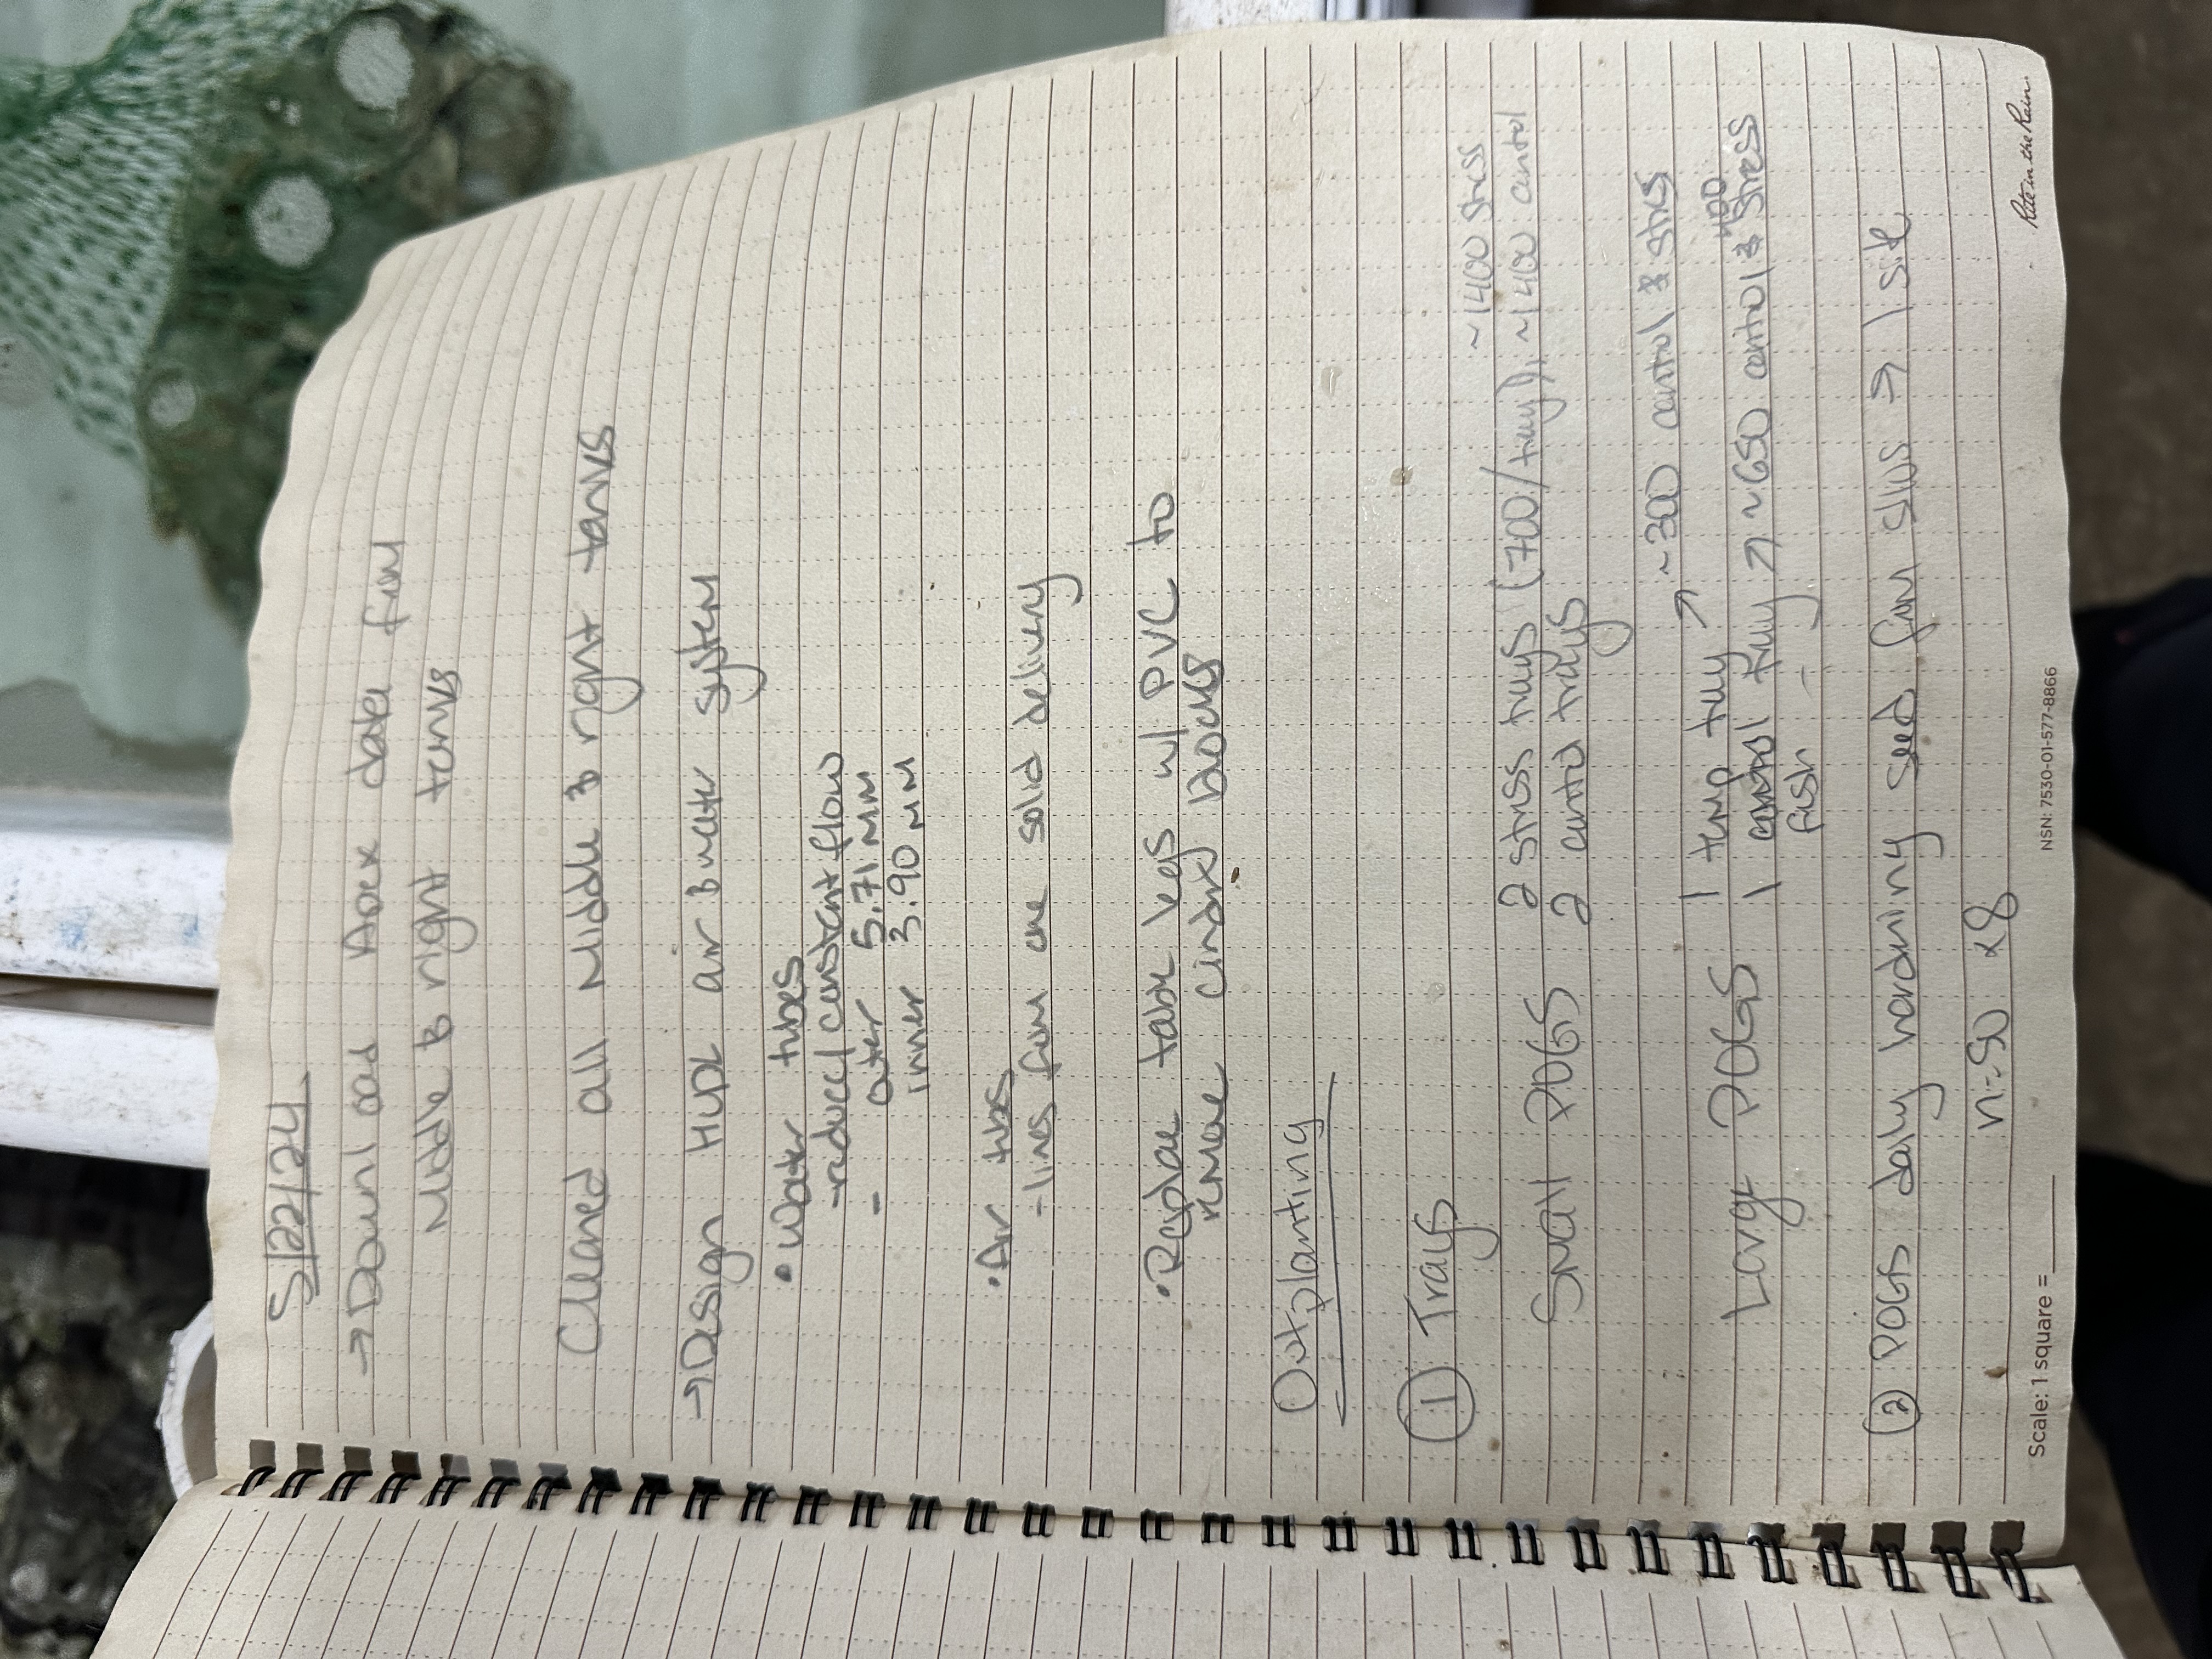 5/22/24
→ Download Apex data from
Middle & right tanks
Cleaned all Middle & right tanks
→ Design air & water system
• Water tubes
- reduce/constant flow
- outer 5.71 mm
inner 3.90 mm
• Air tubes
- lines from one solid delivery
• Replace table legs w/ PVC to
remove cinder blocks
Outplanting
① Trays
~1400 stress
Small POGS 2 stress trays (700/tray), ~1400 control
2 control trays
~300 control & stress
1 temp tray ↗
400
Large POGS 1 control tray ↗ ~650 control & stress
fresh -
② POGS daily hardening seed from → 1 site
n=50 x8
Scale: 1 square =
NSN: 7530-01-577-8866
Rite in the Rain.